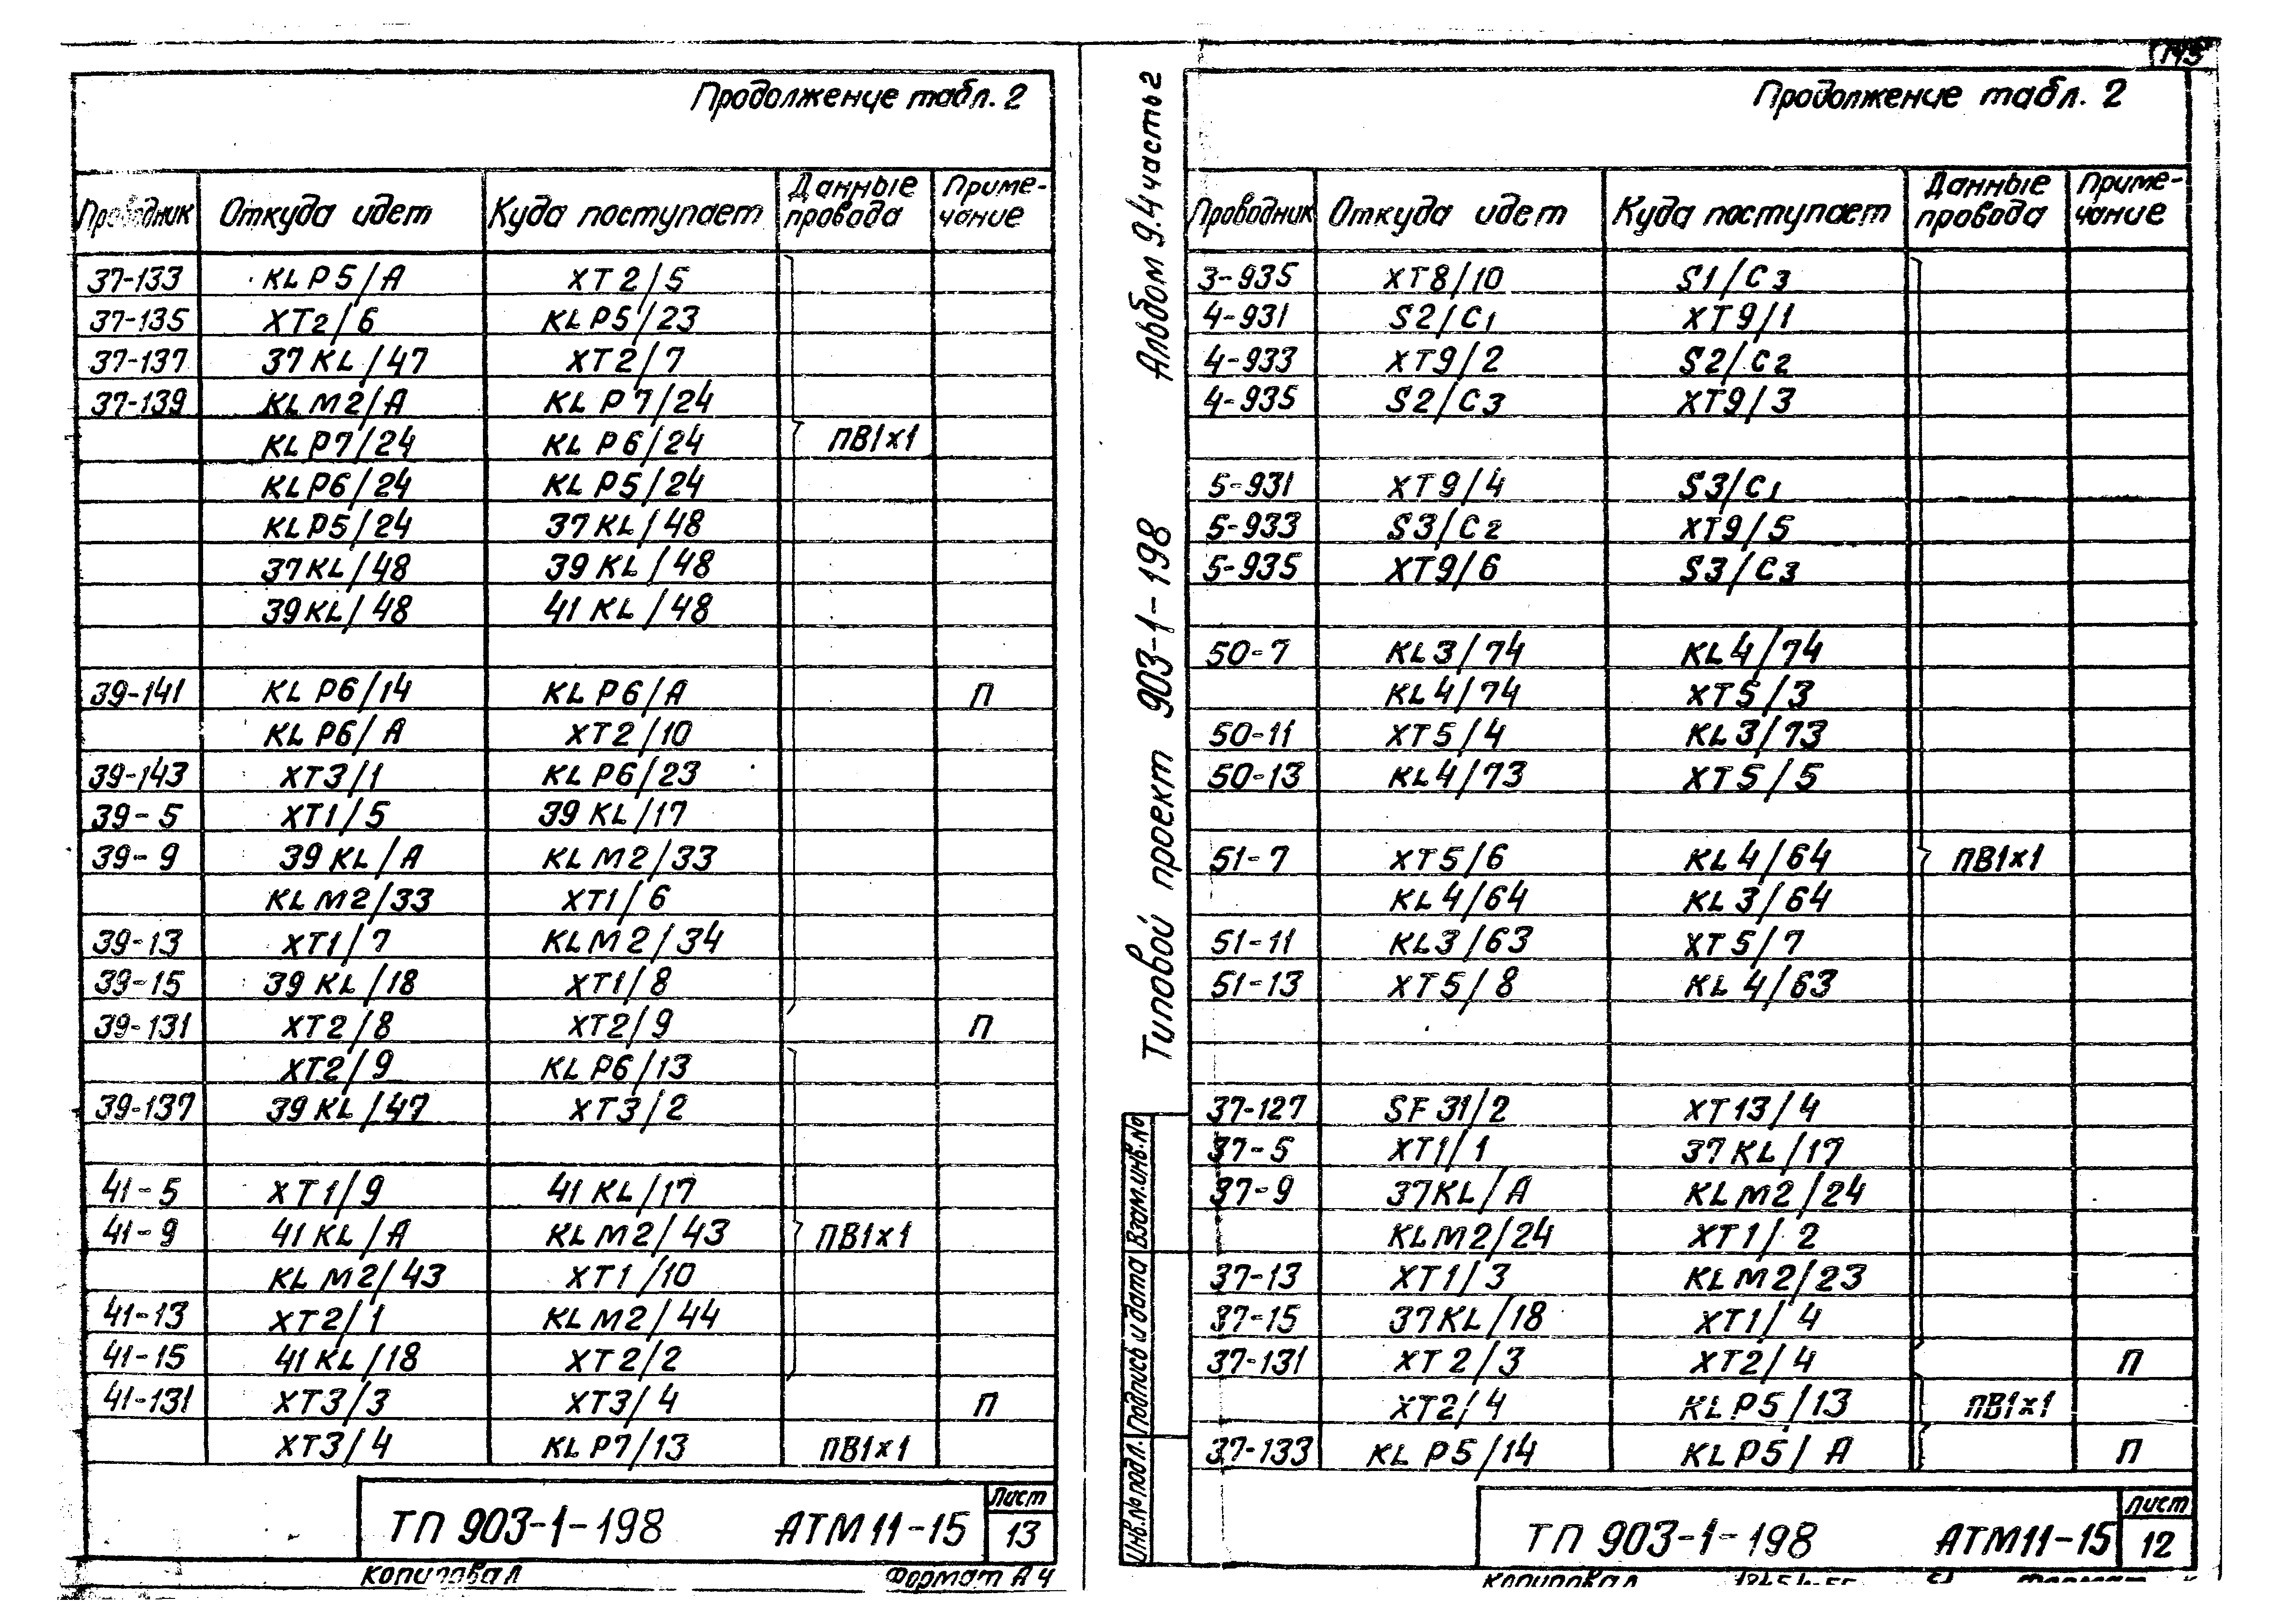 Продолжение табл. 2
Проводник Откуда идет Куда поступает Данные провода Приме-чание
37-133 KLP5/A XT2/5
37-135 XT2/6 KLP5/23
37-137 37KL/47 XT2/7
37-139 KLM2/A KLP7/24
KLP7/24 KLP6/24 ПВ1х1
KLP6/24 KLP5/24
KLP5/24 37KL/48
37KL/48 39KL/48
39KL/48 41KL/48
39-141 KLP6/14 KLP6/A П
KLP6/A XT2/10
39-143 XT3/1 KLP6/23
39-5 XT1/5 39KL/17
39-9 39KL/A KLM2/33
KLM2/33 XT1/6
39-13 XT1/7 KLM2/34
39-15 39KL/18 XT1/8
39-131 XT2/8 XT2/9 П
XT2/9 KLP6/13
39-137 39KL/47 XT3/2
41-5 XT1/9 41KL/17
41-9 41KL/A KLM2/43 ПВ1х1
KLM2/43 XT1/10
41-13 XT2/1 KLM2/44
41-15 41KL/18 XT2/2
41-131 XT3/3 XT3/4 П
XT3/4 KLP7/13 ПВ1х1
ТП 903-1-198 АТМ11-15 Лист 13
Копировал Формат А4
145
Альбом 9.4 часть 2
Типовой проект 903-1-198
Инв.№ подл. Подпись и дата Взам.инв.№
Продолжение табл. 2
Проводник Откуда идет Куда поступает Данные провода Приме-чание
3-935 XT8/10 S1/C3
4-931 S2/C1 XT9/1
4-933 XT9/2 S2/C2
4-935 S2/C3 XT9/3
5-931 XT9/4 S3/C1
5-933 S3/C2 XT9/5
5-935 XT9/6 S3/C3
50-7 KL3/74 KL4/74
KL4/74 XT5/3
50-11 XT5/4 KL3/73
50-13 KL4/73 XT5/5
51-7 XT5/6 KL4/64 ПВ1х1
KL4/64 KL3/64
51-11 KL3/63 XT5/7
51-13 XT5/8 KL4/63
37-127 SF31/2 XT13/4
37-5 XT1/1 37KL/17
37-9 37KL/A KLM2/24
KLM2/24 XT1/2
37-13 XT1/3 KLM2/23
37-15 37KL/18 XT1/4
37-131 XT2/3 XT2/4 П
XT2/4 KLP5/13 ПВ1х1
37-133 KLP5/14 KLP5/A П
ТП 903-1-198 АТМ11-15 Лист 12
Копировал Формат